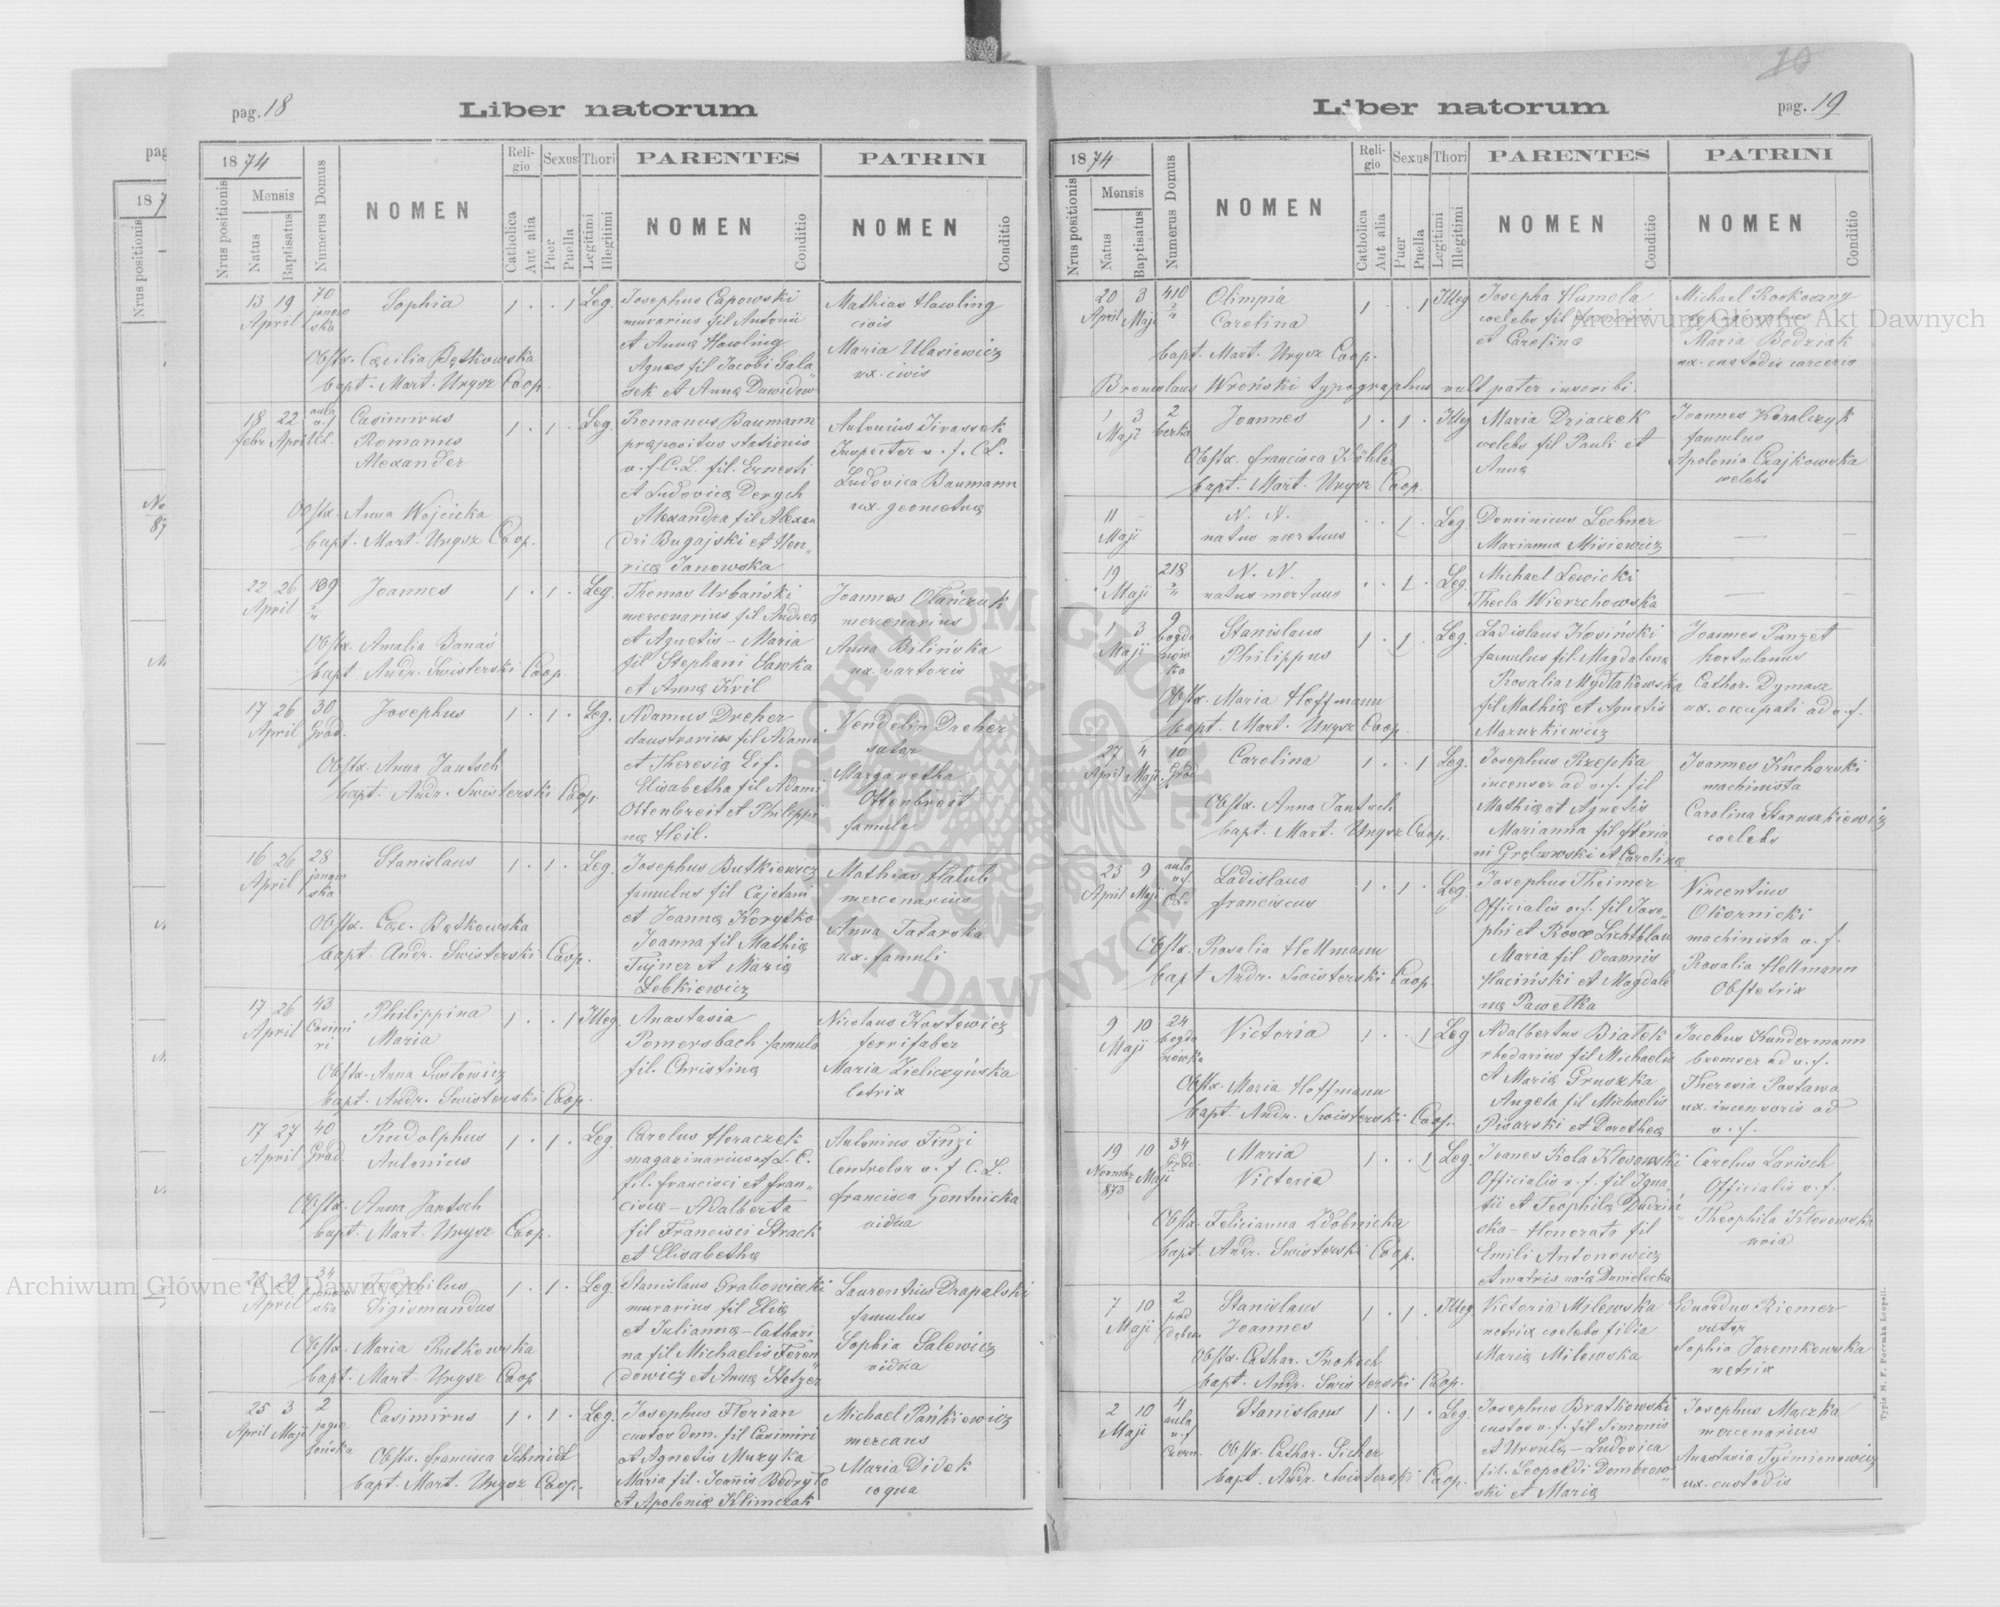 10
pag. 18
Liber natorum
1874
Nrus positionis
Mensis
Natus
Baptisatus
Numerus Domus
NOMEN
Religio
Catholica
Aut alia
Sexus
Puer
Puella
Thori
Legitimi
Illegitimi
PARENTES
NOMEN
Conditio
PATRINI
NOMEN
Conditio
13 19 70
April
Sophia
1 . . 1 Leg.
Josephus Capowski
murarius fil Antonii
et Anna Hawling
Agnes fil Jacobi Gala
sek et Anna Dawidow
Mathias Hawling
civis
Maria Ulasiewicz
ux. civis
Obstx. Cæcilia Bętkowska
bapt. Mart. Ungsz Coop.
18 22
febr April
Casimirus
Romanus
Alexander
1 . 1 . Leg.
Romanus Baumann
præpositus stationis
v. f. C. L. fil. Ernesti
et Ludovica Derych
Alexandra fil Alexan
dri Bugajski et Hen„
rica Janowska
Antonius Jirassek
Inspector v. f. C L.
Ludovica Baumann
ux. geometræ
Obstx. Anna Wojcicka
bapt. Mart. Ungsz Coop.
22 26 109
April
Joannes
1 . 1 . Leg.
Thomas Urbański
mercenarius fil Andreæ
et Agnetis – Maria
fil Stephani Sawka
et Anna Kril
Joannes Olańczuk
mercenarius
Anna Bilińska
ux. sartoris
Obstx. Amalia Banaś
bapt. Andr. Swisterski Coop.
17 26 30
April Gród.
Josephus
1 . 1 . Leg.
Adamus Dreher
claustrarius fil Adami
et Theresia Lif.
Elisabetha fil Adami
Ottenbreit et Philippi
na Heil.
Vendelin Dreher
sutor
Margaretha
Ottenbreit
famula
Obstx. Anna Jantsch
bapt. Andr. Swisterski Coop.
16 26 28
April
Stanislaus
1 . 1 . Leg.
Josephus Butkiewicz
famulus fil Cajetani
et Joanna Korytko
Joanna fil Mathiæ
Tujner et Maria
Lebkiewicz
Mathias Halub
mercenarius
Anna Tatarska
ux. famuli
Obstx. Cæc. Bętkowska
bapt. Andr. Swisterski Coop.
17 26 43
April Casimi
ri
Philippina
Maria
1 . . 1 Illeg.
Anastasia
Pomersbach famula
fil. Christina
Nicolaus Kostewicz
ferrifaber
Maria Zieliczyńska
lotrix
Obstx. Anna Gustowicz
bapt. Andr. Swisterski Coop.
17 27 40
April Gród.
Rudolphus
Antonius
1 . 1 . Leg.
Carolus Horaczek
magazinarius v f L. C.
fil. francisci et fran„
cisca – Adalberta
fil Francisci Strack
et Elisabetha
Antonius Finzi
Controlor v. f C. L.
francisca Gontnicka
vidua
Obstx. Anna Jantsch
bapt. Mart. Ungsz Coop.
29 34
April
Theophilus
Sigismundus
1 . 1 . Leg.
Stanislaus Grabowiecki
murarius fil Eliæ
et Julianna – Cathari
na fil Michaelis Feren
dowicz et Anna Stetzer
Laurentius Drapalski
famulus
Sophia Galewicz
vidua
Obstx. Maria Rutkowska
bapt. Mart. Ungsz Coop
25 3 2
April Maji
Casimirus
1 . 1 . Leg.
Josephus Florian
custos dom. fil Casimiri
et Agnetis Muzyka
Maria fil. Joannis Bodryło
et Apolonia Klimczak
Michael Pańkiewicz
mercans
Maria Didek
coqua
Obstx. francisca Schmidt
bapt. Mart. Ungsz Coop.
pag. 19
Liber natorum
1874
Nrus positionis
Mensis
Natus
Baptisatus
Numerus Domus
NOMEN
Religio
Catholica
Aut alia
Sexus
Puer
Puella
Thori
Legitimi
Illegitimi
PARENTES
NOMEN
Conditio
PATRINI
NOMEN
Conditio
20 3 410
April Maji
Olimpia
Carolina
1 . . 1 Illeg
Josepha Humela
coelebs fil
et Carolina
Michael Rookoszny
Maria Bedziak
ux. custodis carceris
bapt. Mart. Ungsz Coop.
Bronislaus Wroński typographus vult pater inscribi.
1 3 2
Maji
Joannes
1 . 1 . Illeg
Maria Dziaczek
coelebs fil Pauli et
Anna
Joannes Kowalczyk
famulus
Apolonia Czajkowska
coelebs
Obstx. francisca Köhler
bapt. Mart. Ungsz Coop.
11 –
Maji
N. N.
natus mortuus
. . 1 . Leg.
Dominicus Lechner
Marianna Misiewicz
19 218
Maji
N. N.
natus mortuus
. . 1 . Leg.
Michael Lewicki
Thecla Wierzchowska
1 3 9
Maji bogda
now
ka
Stanislaus
Philippus
1 . 1 . Leg.
Ladislaus Kosiński
famulus fil. Magdalena
Rosalia Mydłakowska
fil Mathiæ et Agnetis
Mazurkiewicz
Joannes Panzet
hortulanus
Cathar. Dymasz
ux. occupati ad v. f.
Obstx. Maria Hoffmann
bapt. Mart. Ungsz Coop.
27 4 10
April Maji Gród
Carolina
1 . . 1 Leg.
Josephus Rzepka
incensor ad v. f. fil
Mathiæ et Agnetis
Marianna fil floria
ni Grelowski et Carolina
Joannes Kucharski
machinista
Carolina Staruszkiewicz
coelebs
Obstx. Anna Jantsch
bapt. Mart. Ungsz Coop.
23 9
April Maji
Ladislaus
franciscus
1 . 1 . Leg.
Josephus Theimer
Officialis v. f. fil Jose„
phi et Rosæ Lichtblau
Maria fil Joannis
Huciński et Magdale
na Pawełka
Vincentius
Okornicki
machinista v. f.
Rosalia Hollmann
Obstetrix
Obstx. Rosalia Hollmann
bapt Andr. Swisterski Coop.
9 10 24
Maji bogda
nowka
Victoria
1 . . 1 Leg
Adalbertus Białek
rhedarius fil Michaelis
et Maria Gruszka
Angela fil Michaelis
Pisarski et Dorothea
Jacobus Kundermann
bremser ad v. f.
Theresia Pastawa
ux. incensoris ad
v. f.
Obstx. Maria Hoffmann
bapt. Andr. Swisterski Coop.
19 10 34
Novembr Maji Gród.
873
Maria
Victoria
1 . . 1 Leg.
Joanes Rola Kłosowski
Officialis v. f. fil Igna
tii et Teophila Dudziń
ska – Honorata fil
Emili Antonowicz
et matris nata Danielecka
Carolus Larisch
Officialis v. f.
Theophila Kłosowska
avia
Obstx. Felicianna Zdobnicka
bapt. Andr. Swisterski Coop.
7 10 2
Maji pod
Stanislaus
Joannes
1 . 1 . Illeg
Victoria Milewska
netrix coelebs filia
Maria Milewska
Eduardus Riemer
sutor
Sophia Jaremkowska
netrix
Obstx. Cathar. Prohsch
bapt. Andr. Swisterski Coop.
2 10 4
Maji aula
v. f
Czern.
Stanislaus
1 . 1 . Leg.
Josephus Bratkowski
custos v. f. fil Simonis
et Ursula – Ludovica
fil. Leopoldi Dombrow„
ski et Maria
Josephus Mączka
mercenarius
Anastasia Tyśmienowicz
ux. custodis
Obstx. Cathar. Sicher
bapt. Andr. Swisterski Coop.
Typis M. F. Poremba Leopoli.
Archiwum Główne Akt Dawnych
Archiwum Główne Akt Dawnych
ARCHIWUM GŁÓWNE AKT DAWNYCH